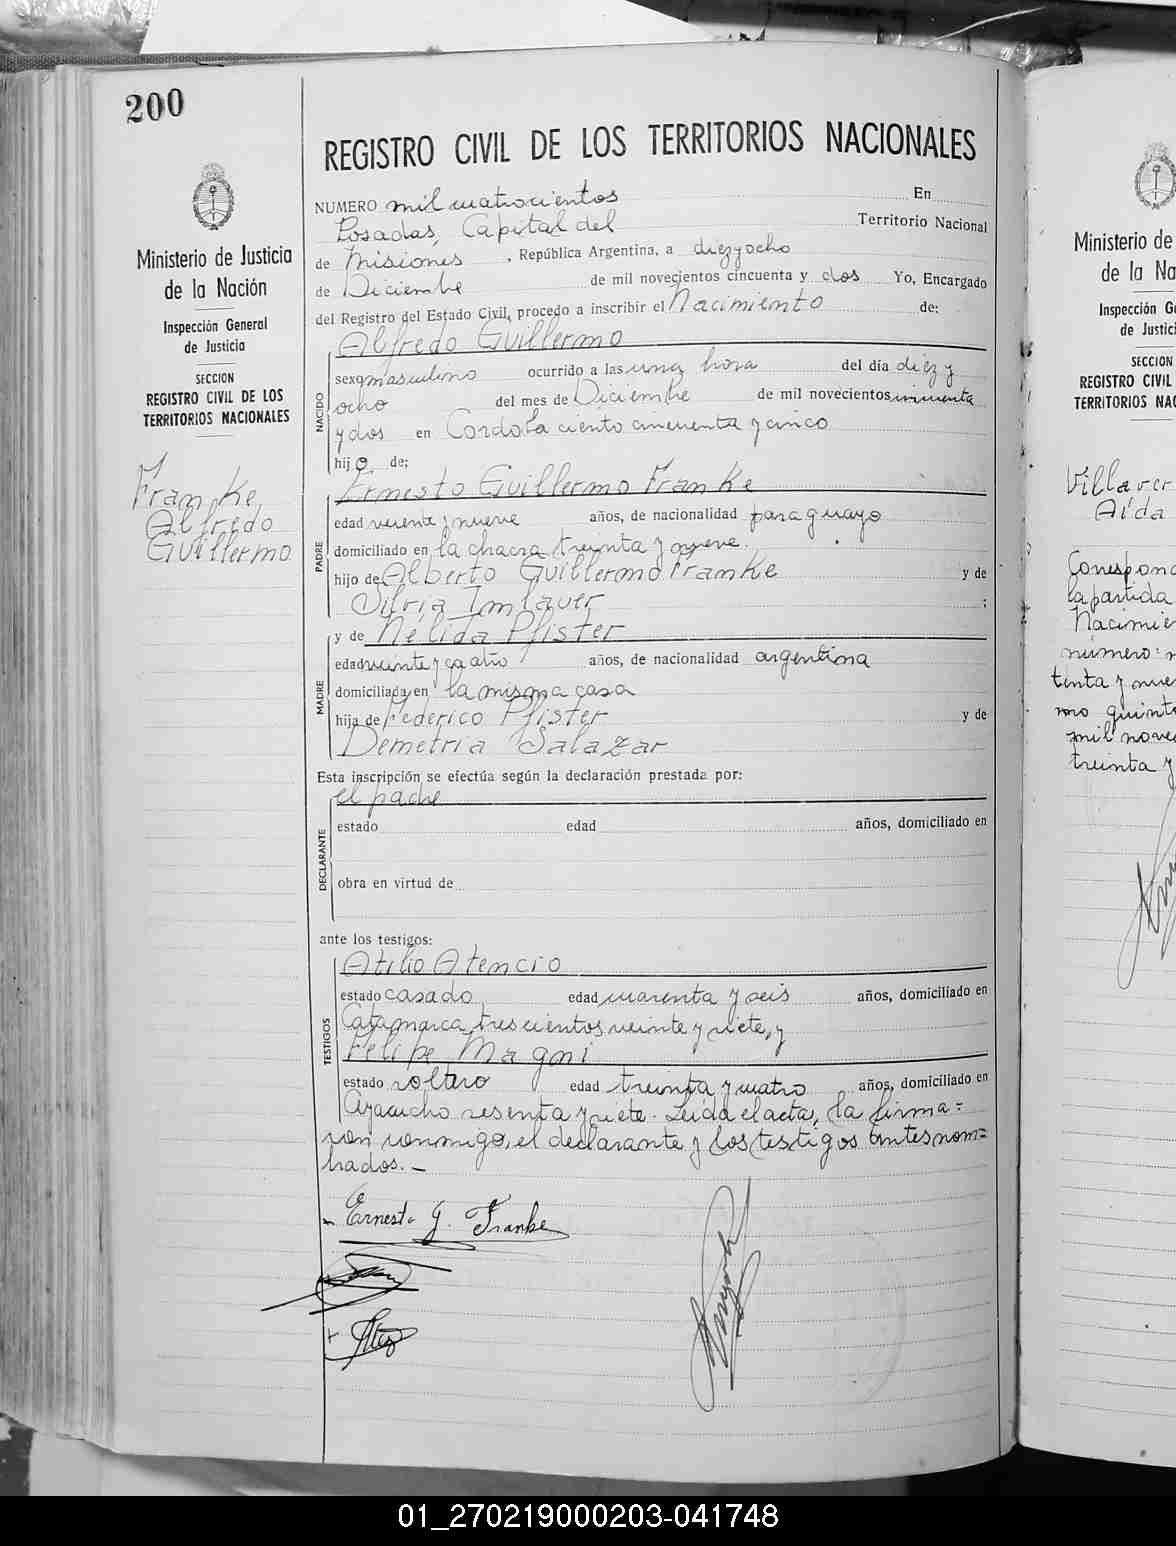 200
REGISTRO CIVIL DE LOS TERRITORIOS NACIONALES
Ministerio de Justicia
de la Nación
Inspección General
de Justicia
SECCION
REGISTRO CIVIL DE LOS
TERRITORIOS NACIONALES
Franke
Alfredo
Guillermo
NUMERO mil cuatrocientos En
Posadas, Capital del Territorio Nacional
de Misiones, República Argentina, a diez y ocho
de Diciembre de mil novecientos cincuenta y dos Yo, Encargado
del Registro del Estado Civil, procedo a inscribir el Nacimiento de:
Alfredo Guillermo
NACIDO
sexo masculino ocurrido a las una hora del día diez y
ocho del mes de Diciembre de mil novecientos cincuenta
y dos en Cordoba ciento cincuenta y cinco
hijo de:
Ernesto Guillermo Franke
PADRE
edad veinte y nueve años, de nacionalidad paraguayo
domiciliado en la chacra treinta y nueve.
hijo de Alberto Guillermo Franke y de
Silvia Imlauer ;
y de Nélida Pfister
MADRE
edad veinte y cuatro años, de nacionalidad argentina
domiciliada en la misma casa
hija de Federico Pfister y de
Demetria Salazar
Esta inscripción se efectúa según la declaración prestada por:
el padre
DECLARANTE
estado edad años, domiciliado en
obra en virtud de
ante los testigos:
TESTIGOS
Atilio Atencio
estado casado edad cuarenta y seis años, domiciliado en
Catamarca trescientos veinte y siete, y
Felipe Magni
estado soltero edad treinta y cuatro años, domiciliado en
Ayacucho sesenta y siete. Leida el acta, la firma=
ron conmigo, el declarante y los testigos antes nom=
brados.-
Ernesto G. Franke
Ministerio de
de la Na
Inspección G
de Justici
SECCION
REGISTRO CIVIL
TERRITORIOS NAC
Villaver
Aida
Correspond
la partida
Nacimie
número: n
tenta y nue
mo quinto
mil nove
treinta y
01_270219000203-041748